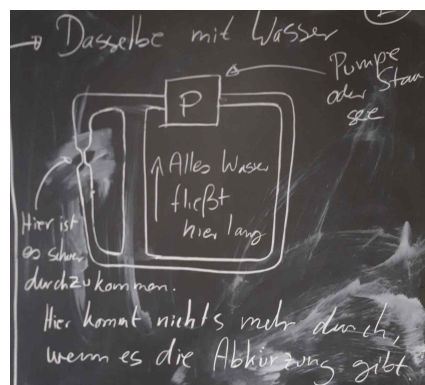 → Dasselbe mit Wasser
Pumpe
oder Stau
see
P
Alles Wasser
fließt
hier lang
Hier ist
es schwer
durchzukommen.
Hier kommt nichts mehr durch,
wenn es die Abkürzung gibt.